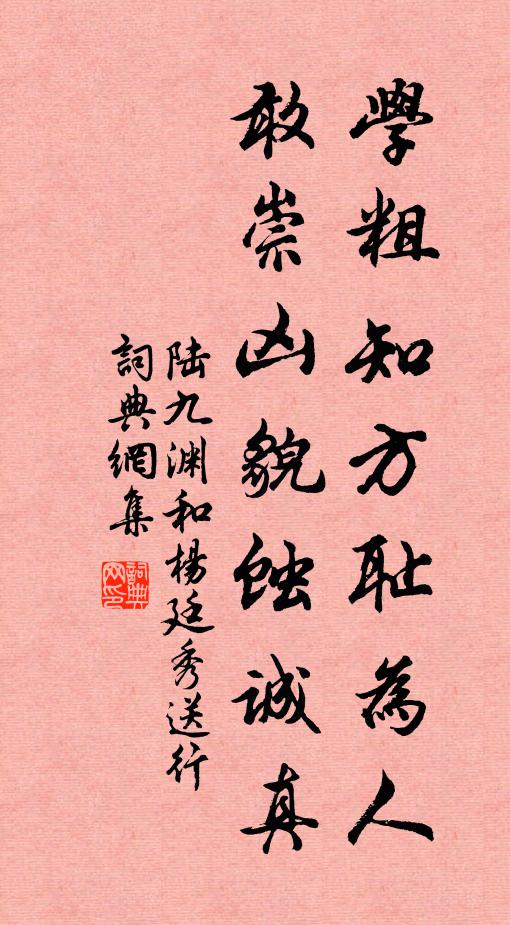 學粗知方耻為人
敢崇凶貌蝕誠真
陸九渊和楊廷秀送行
詞典網集
詞典
网印